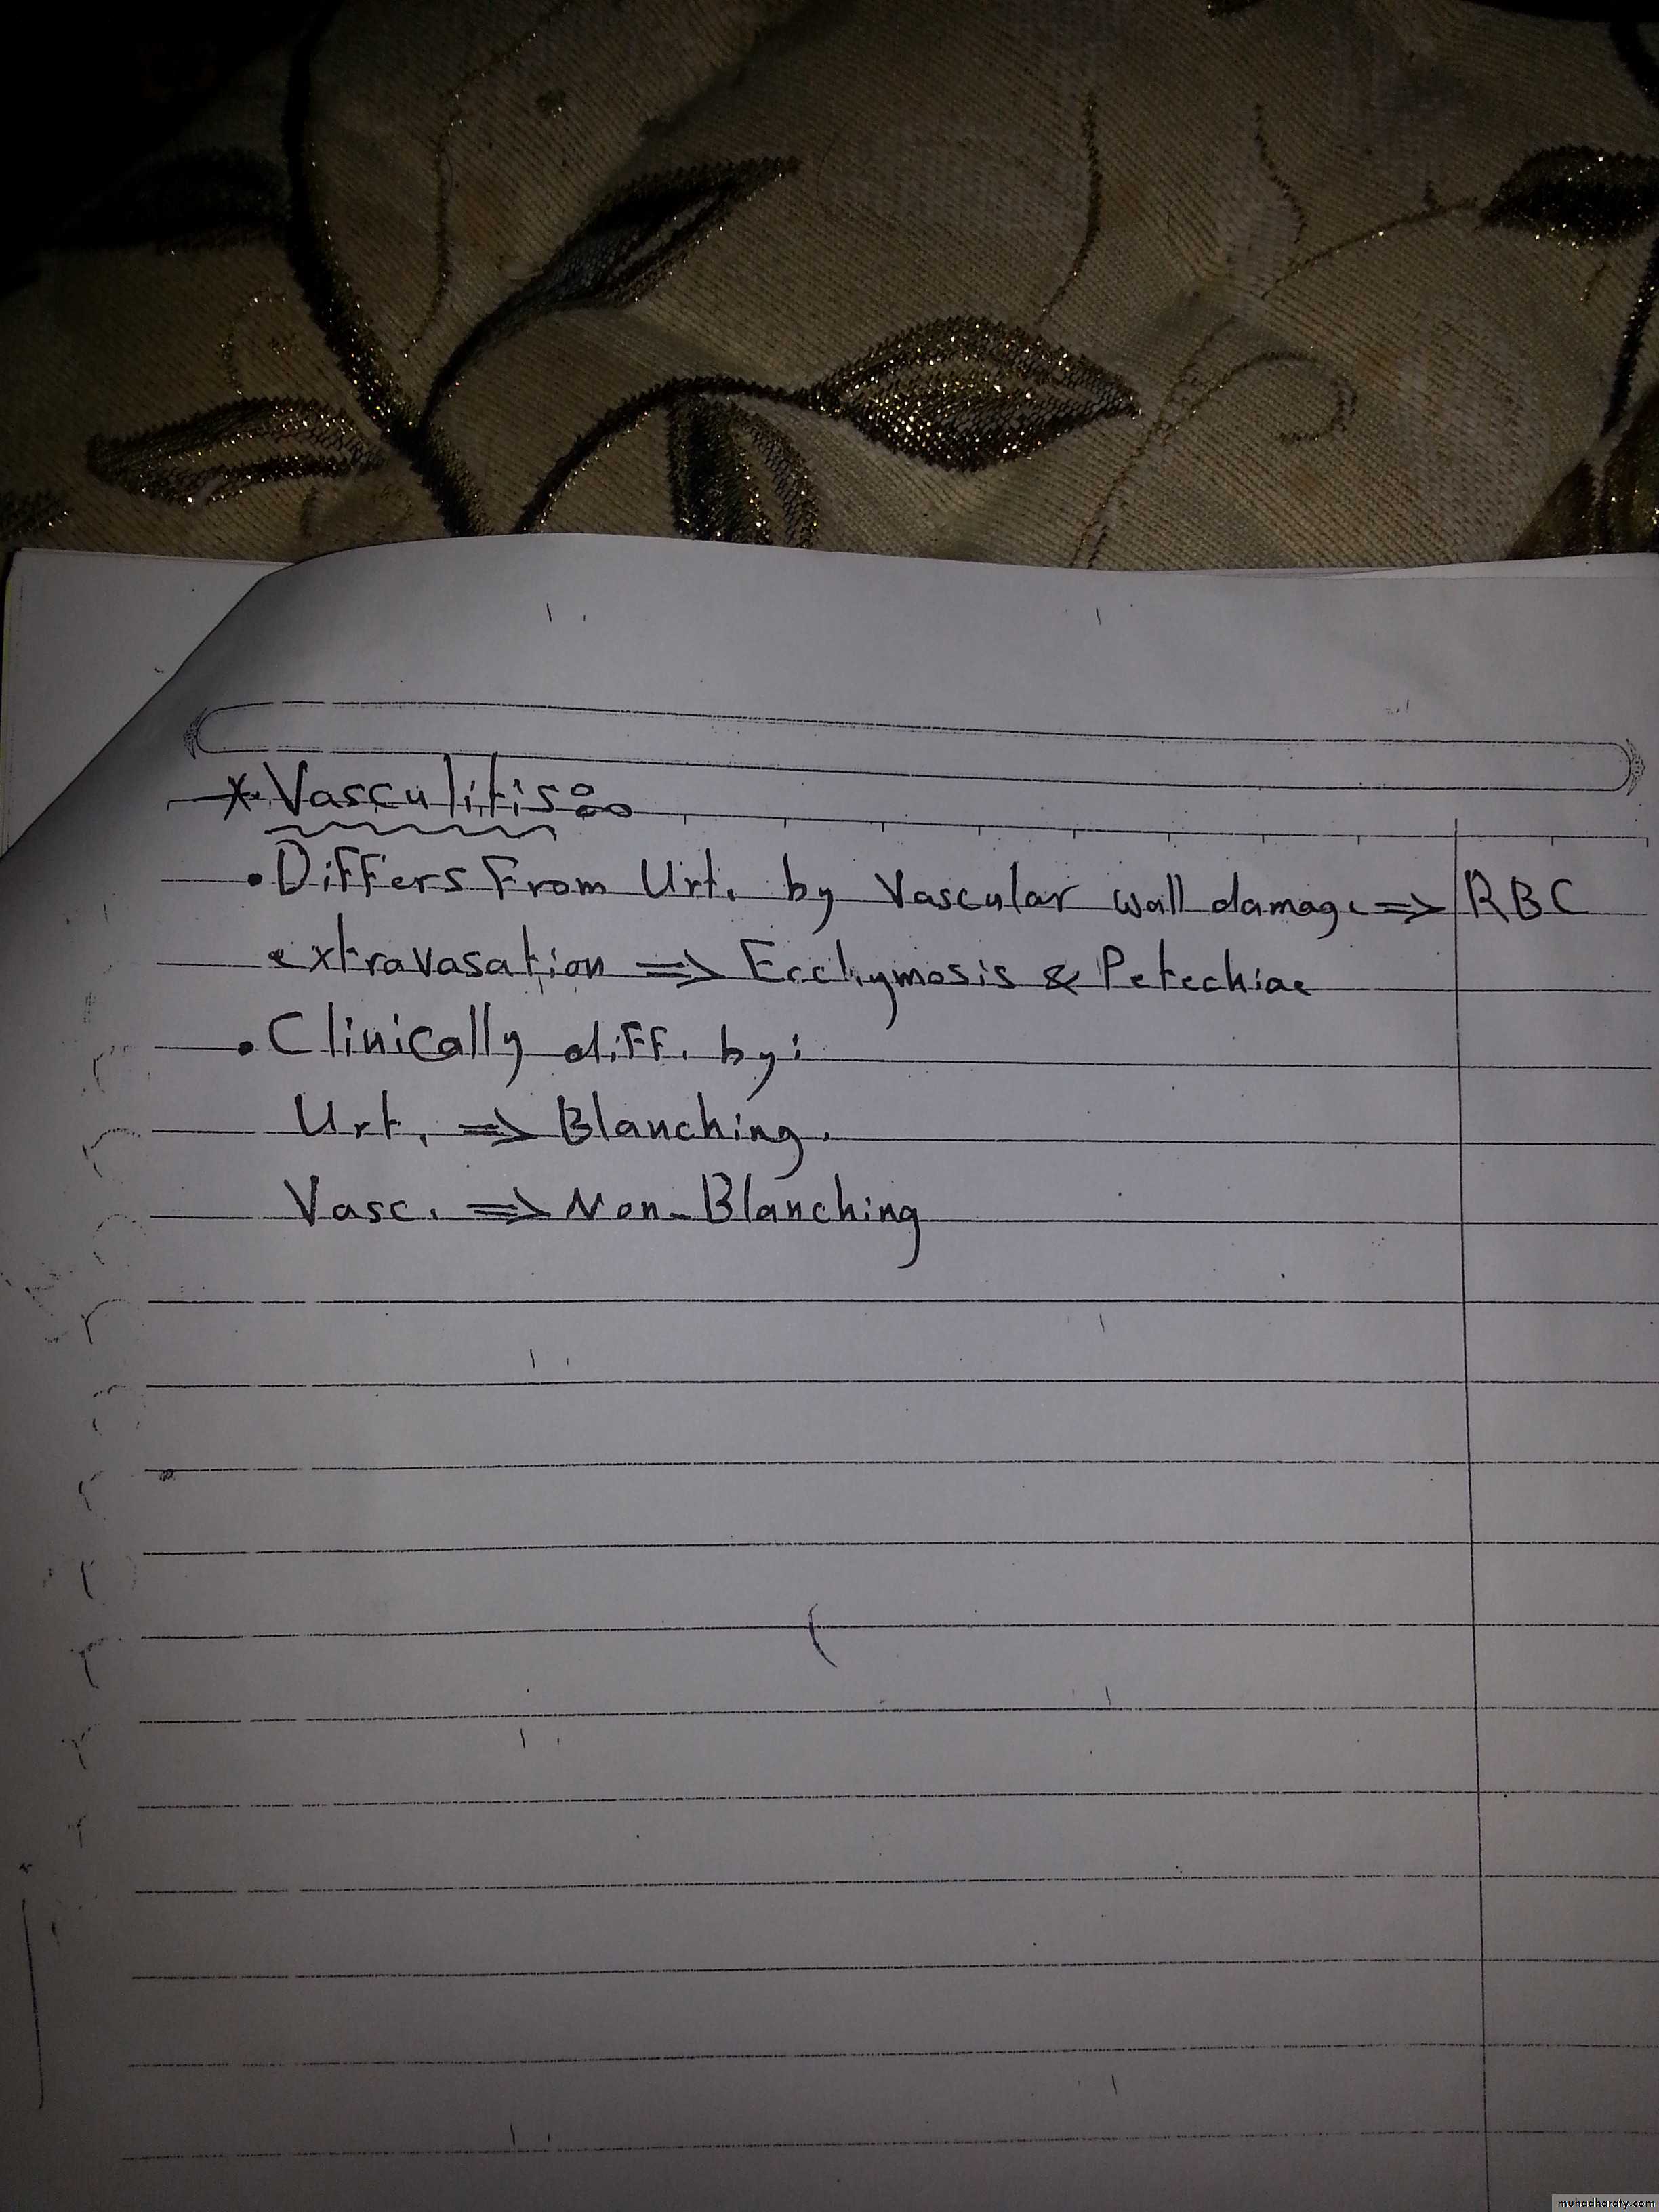 * Vasculitis:-
• Differs From Urt. by Vascular wall damage => RBC
extravasation => Ecchymosis & Petechiae
• Clinically diff. by:
Urt. => Blanching.
Vasc. => Non-Blanching
muhadharaty.com